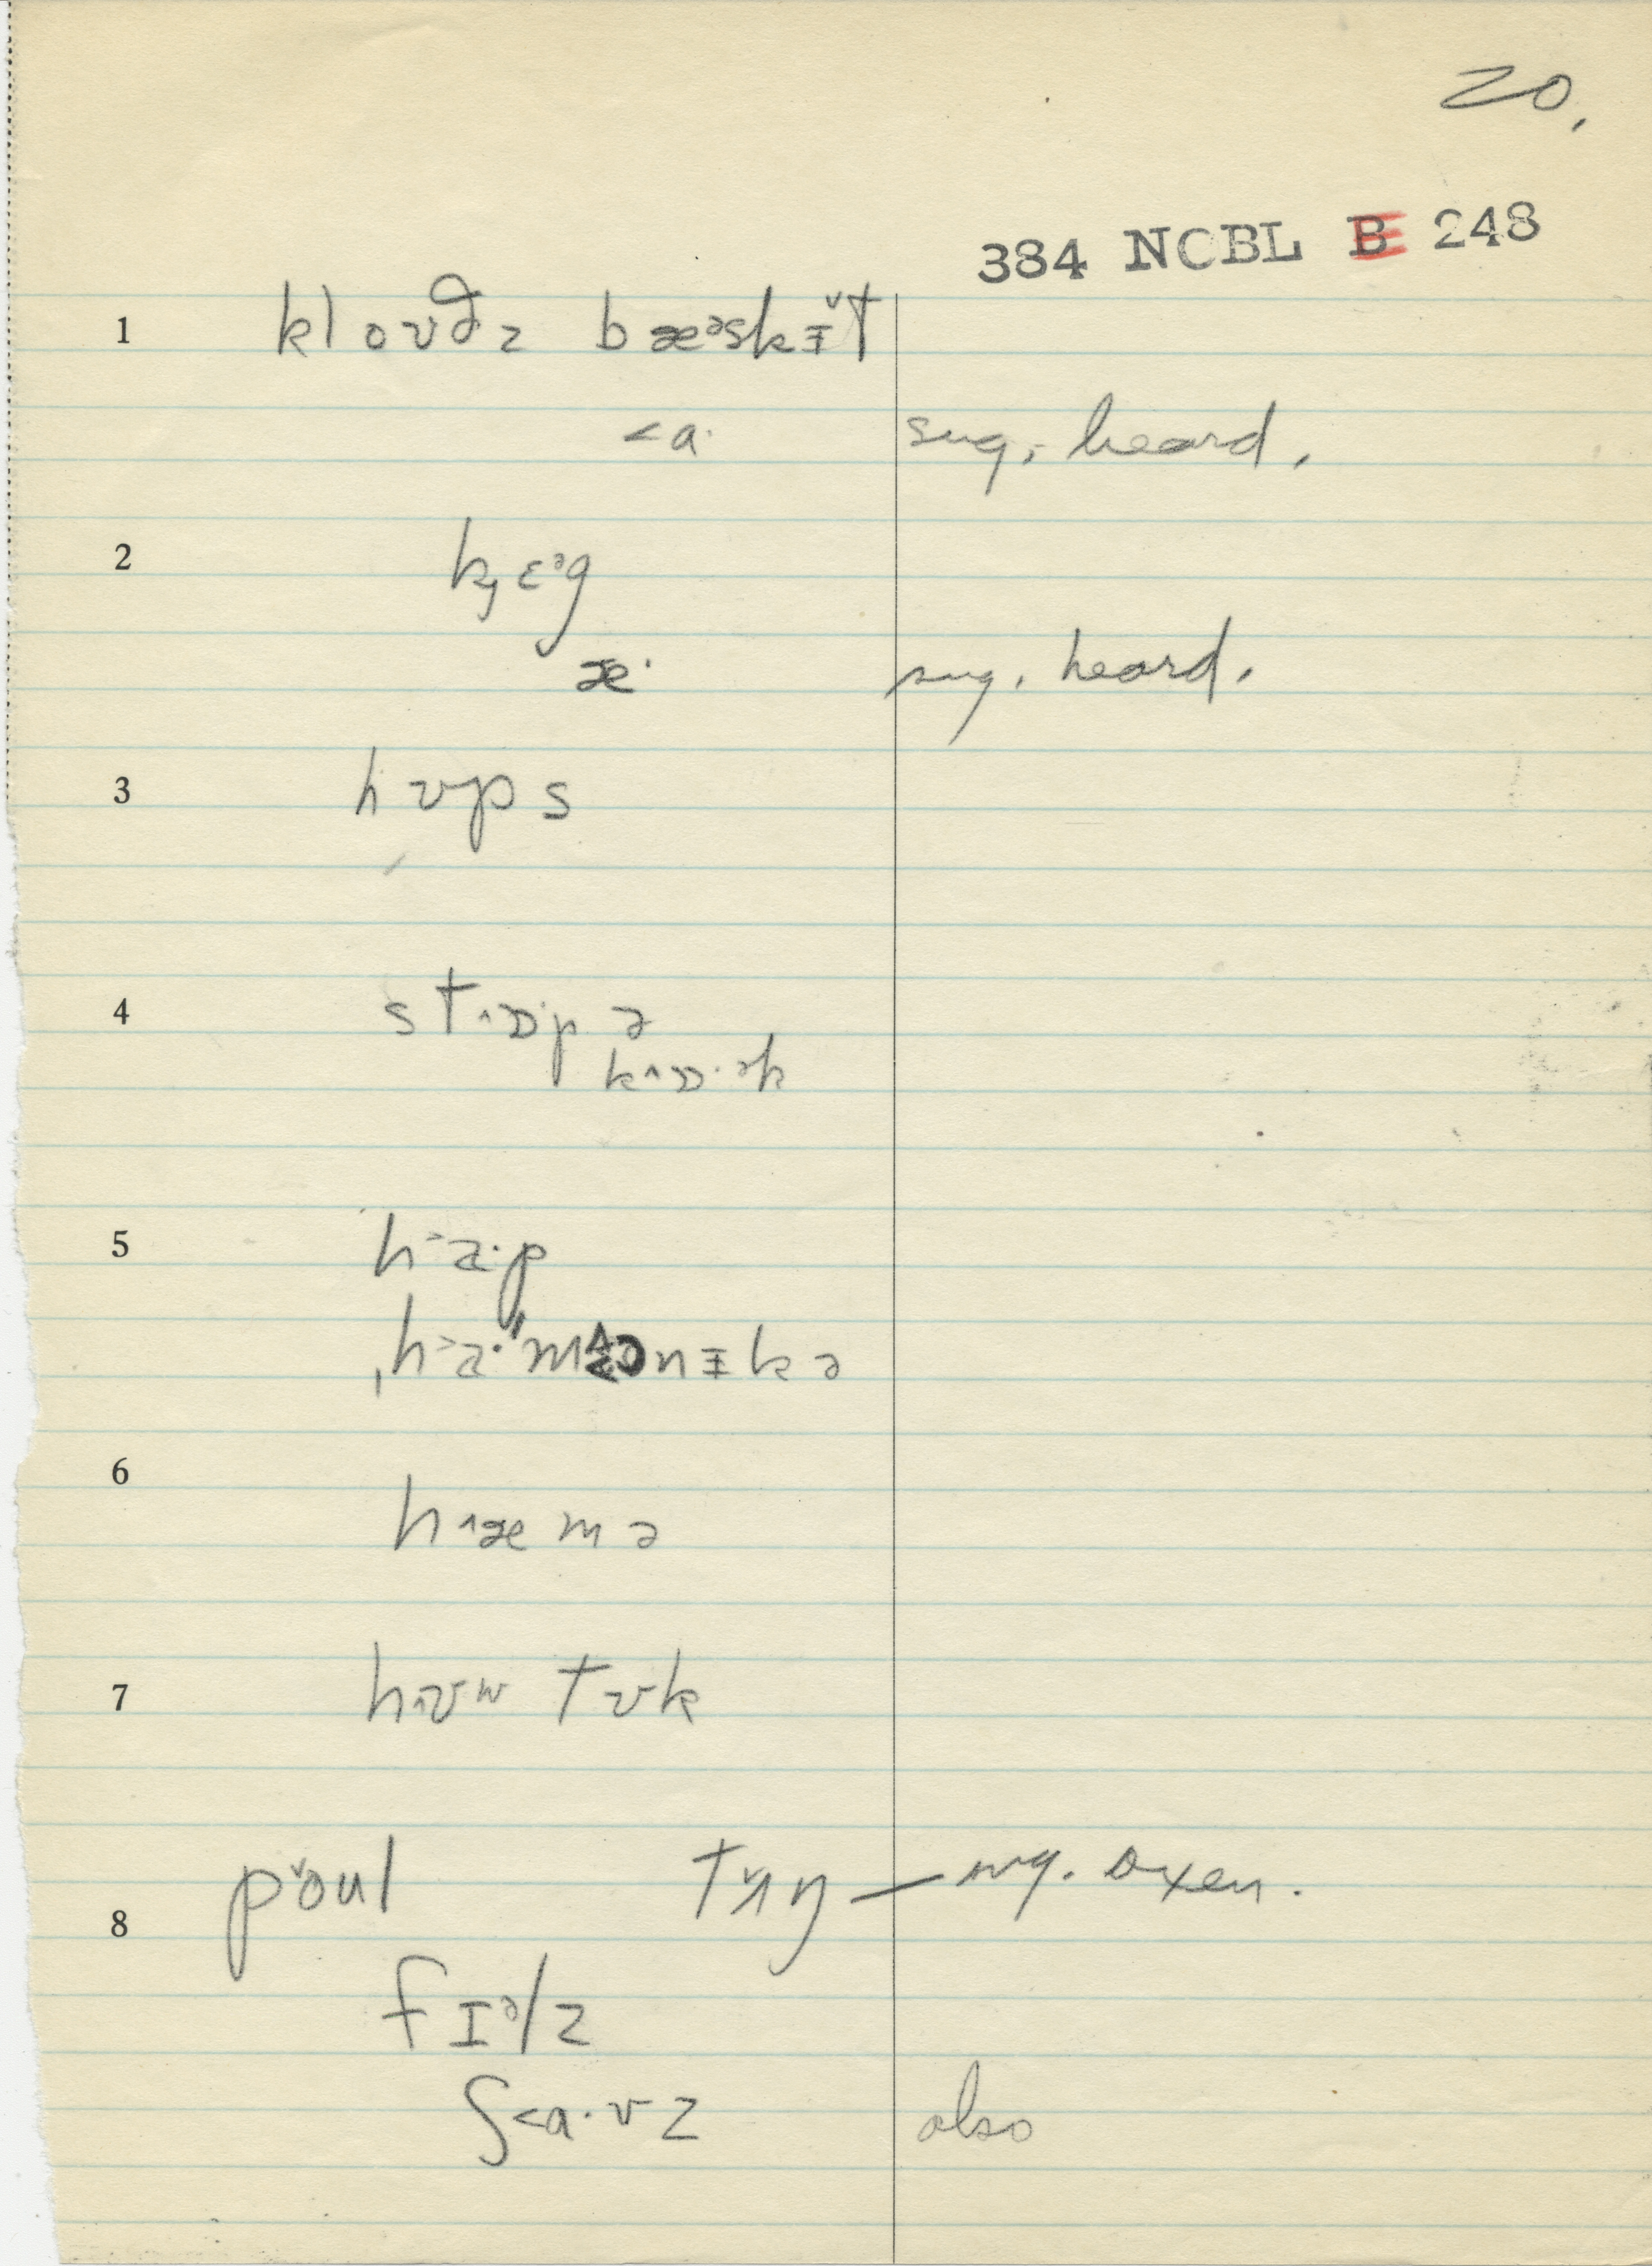 20.
384 NCBL B 248
1 kloʊðz bæᵊskɪ̵̌t
<a· sug. heard.
2 k̡ɛᵊg
æ· sug. heard.
3 hʊps
4 st˄ɒpə
k˄ɒ·ək
5 h˃a·p
h˃a·mənɪ̵kə
6 h˄æmə
7 h˄ʊw tʊk
8 pǒul tʌ̌ŋ — sug. oxen.
fɪᵊlz
ʃ<a·vz also